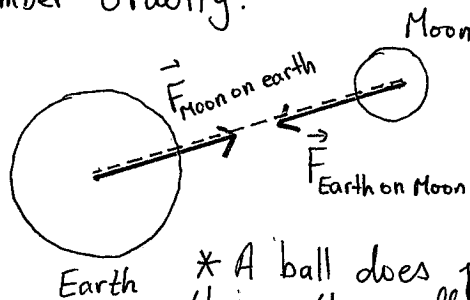 Gravity!
Moon
F Moon on earth
F Earth on Moon
Earth
* A ball does